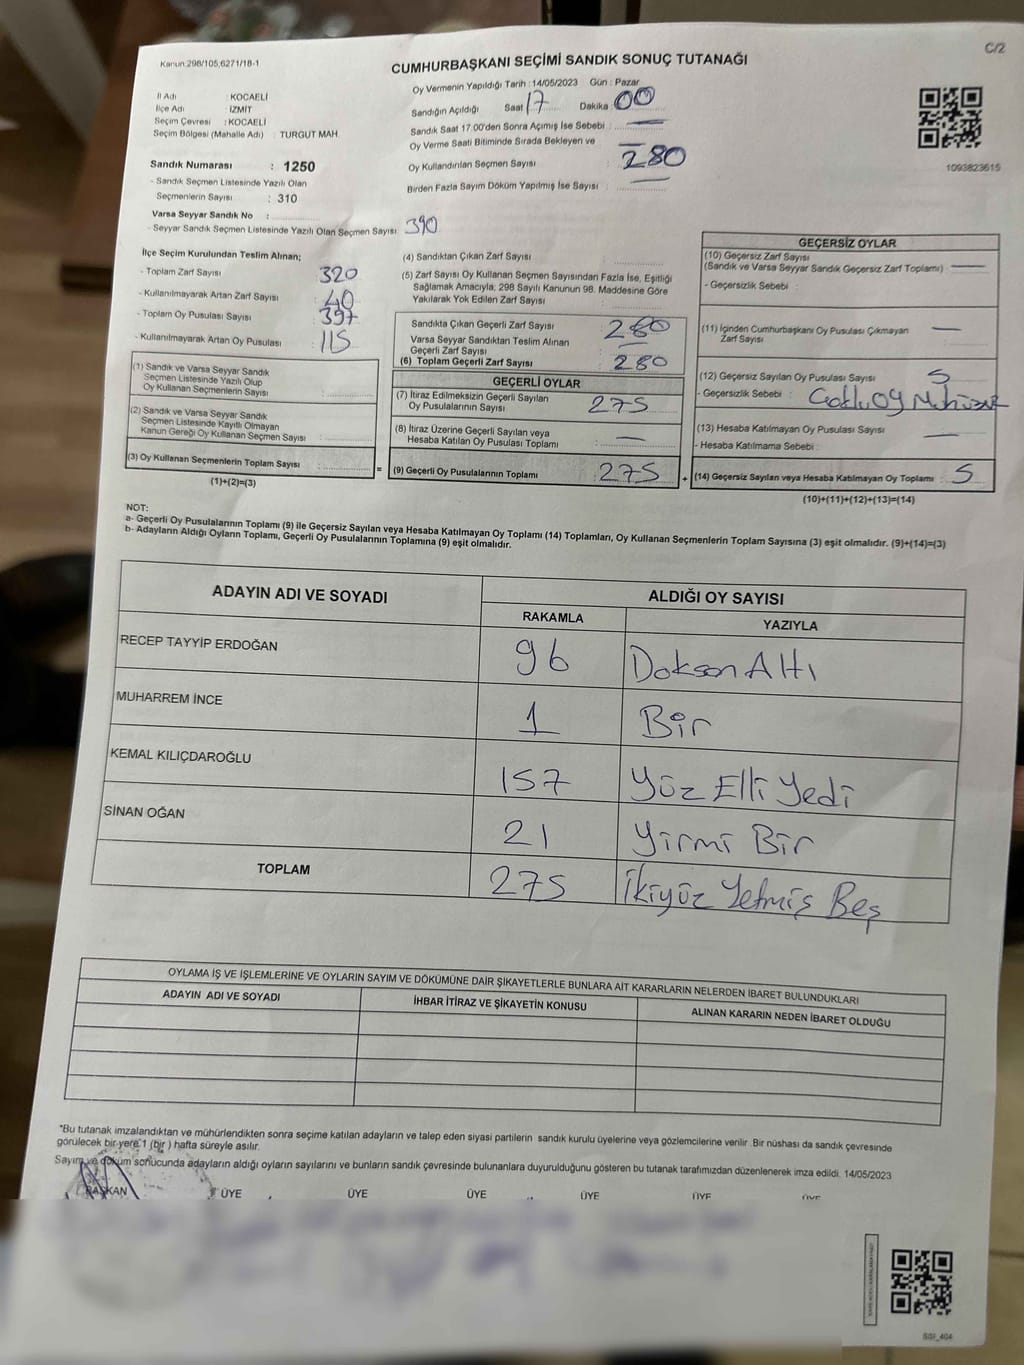 C/2
Kanun:298/105,6271/18-1
CUMHURBAŞKANI SEÇİMİ SANDIK SONUÇ TUTANAĞI
İl Adı : KOCAELİ
İlçe Adı : İZMİT
Seçim Çevresi : KOCAELİ
Seçim Bölgesi (Mahalle Adı) : TURGUT MAH.
Sandık Numarası : 1250
- Sandık Seçmen Listesinde Yazılı Olan
Seçmenlerin Sayısı : 310
Varsa Seyyar Sandık No :
- Seyyar Sandık Seçmen Listesinde Yazılı Olan Seçmen Sayısı 390
Oy Vermenin Yapıldığı Tarih : 14/05/2023 Gün : Pazar
Sandığın Açıldığı Saat 17 Dakika 00
Sandık Saat 17.00'den Sonra Açımış İse Sebebi : —
Oy Verme Saati Bitiminde Sırada Bekleyen ve
Oy Kullandırılan Seçmen Sayısı : 280
Birden Fazla Sayım Döküm Yapılmış İse Sayısı : —
1093823615
İlçe Seçim Kurulundan Teslim Alınan;
- Toplam Zarf Sayısı : 320
- Kullanılmayarak Artan Zarf Sayısı : 40
- Toplam Oy Pusulası Sayısı : 397
- Kullanılmayarak Artan Oy Pusulası : 115
(1) Sandık ve Varsa Seyyar Sandık
Seçmen Listesinde Yazılı Olup
Oy Kullanan Seçmenlerin Sayısı :
(2) Sandık ve Varsa Seyyar Sandık
Seçmen Listesinde Kayıtlı Olmayan
Kanun Gereği Oy Kullanan Seçmen Sayısı :
(3) Oy Kullanan Seçmenlerin Toplam Sayısı :
(1)+(2)=(3)
(4) Sandıktan Çıkan Zarf Sayısı :
(5) Zarf Sayısı Oy Kullanan Seçmen Sayısından Fazla İse, Eşitliği
Sağlamak Amacıyla, 298 Sayılı Kanunun 98. Maddesine Göre
Yakılarak Yok Edilen Zarf Sayısı :
Sandıkta Çıkan Geçerli Zarf Sayısı : 280
Varsa Seyyar Sandıktan Teslim Alınan
Geçerli Zarf Sayısı : —
(6) Toplam Geçerli Zarf Sayısı : 280
GEÇERLİ OYLAR
(7) İtiraz Edilmeksizin Geçerli Sayılan
Oy Pusulalarının Sayısı : 275
(8) İtiraz Üzerine Geçerli Sayılan veya
Hesaba Katılan Oy Pusulası Toplamı : —
= (9) Geçerli Oy Pusulalarının Toplamı : 275 +
GEÇERSİZ OYLAR
(10) Geçersiz Zarf Sayısı
(Sandık ve Varsa Seyyar Sandık Geçersiz Zarf Toplamı) : —
- Geçersizlik Sebebi :
(11) İçinden Cumhurbaşkanı Oy Pusulası Çıkmayan
Zarf Sayısı : —
(12) Geçersiz Sayılan Oy Pusulası Sayısı : 5
- Geçersizlik Sebebi :
(13) Hesaba Katılmayan Oy Pusulası Sayısı : —
- Hesaba Katılmama Sebebi :
(14) Geçersiz Sayılan veya Hesaba Katılmayan Oy Toplamı : 5
(10)+(11)+(12)+(13)=(14)
NOT:
a- Geçerli Oy Pusulalarının Toplamı (9) ile Geçersiz Sayılan veya Hesaba Katılmayan Oy Toplamı (14) Toplamları, Oy Kullanan Seçmenlerin Toplam Sayısına (3) eşit olmalıdır. (9)+(14)=(3)
b- Adayların Aldığı Oyların Toplamı, Geçerli Oy Pusulalarının Toplamına (9) eşit olmalıdır.
ADAYIN ADI VE SOYADI ALDIĞI OY SAYISI
RAKAMLA YAZIYLA
RECEP TAYYİP ERDOĞAN 96 Doksan Altı
MUHARREM İNCE 1 Bir
KEMAL KILIÇDAROĞLU 157 Yüz Elli Yedi
SİNAN OĞAN 21 Yirmi Bir
TOPLAM 275 İkiyüz Yetmiş Beş
OYLAMA İŞ VE İŞLEMLERİNE VE OYLARIN SAYIM VE DÖKÜMÜNE DAİR ŞİKAYETLERLE BUNLARA AİT KARARLARIN NELERDEN İBARET BULUNDUKLARI
ADAYIN ADI VE SOYADI İHBAR İTİRAZ VE ŞİKAYETİN KONUSU ALINAN KARARIN NEDEN İBARET OLDUĞU
"Bu tutanak imzalandıktan ve mühürlendikten sonra seçime katılan adayların ve talep eden siyasi partilerin sandık kurulu üyelerine veya gözlemcilerine verilir. Bir nüshası da sandık çevresinde
görülecek bir yere 1 (bir ) hafta süreyle asılır.
Sayım ve döküm sonucunda adayların aldığı oyların sayılarını ve bunların sandık çevresinde bulunanlara duyurulduğunu gösteren bu tutanak tarafımızdan düzenlenerek imza edildi. 14/05/2023
BAŞKAN ÜYE ÜYE ÜYE ÜYE ÜYE ÜYE